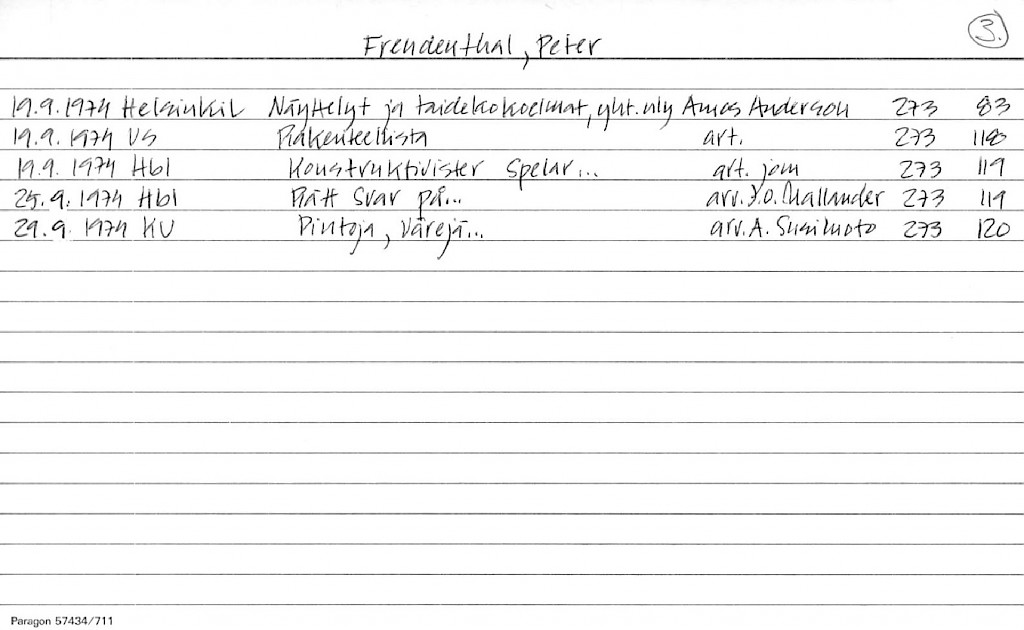 3.
Freudenthal, Peter
19.9.1974 Helsinki L Näyttelyt ja taidekokoelmat, yht.nly Amos Anderson 273 83
19.9.1974 US Rakenteellista art. 273 118
19.9.1974 Hbl Konstruktivister spelar... art. jom 273 119
25.9.1974 Hbl Rätt svar på... arv. J.O. Mallander 273 119
29.9.1974 KU Pintoja, värejä... arv. A. 273 120
Paragon 57434/711